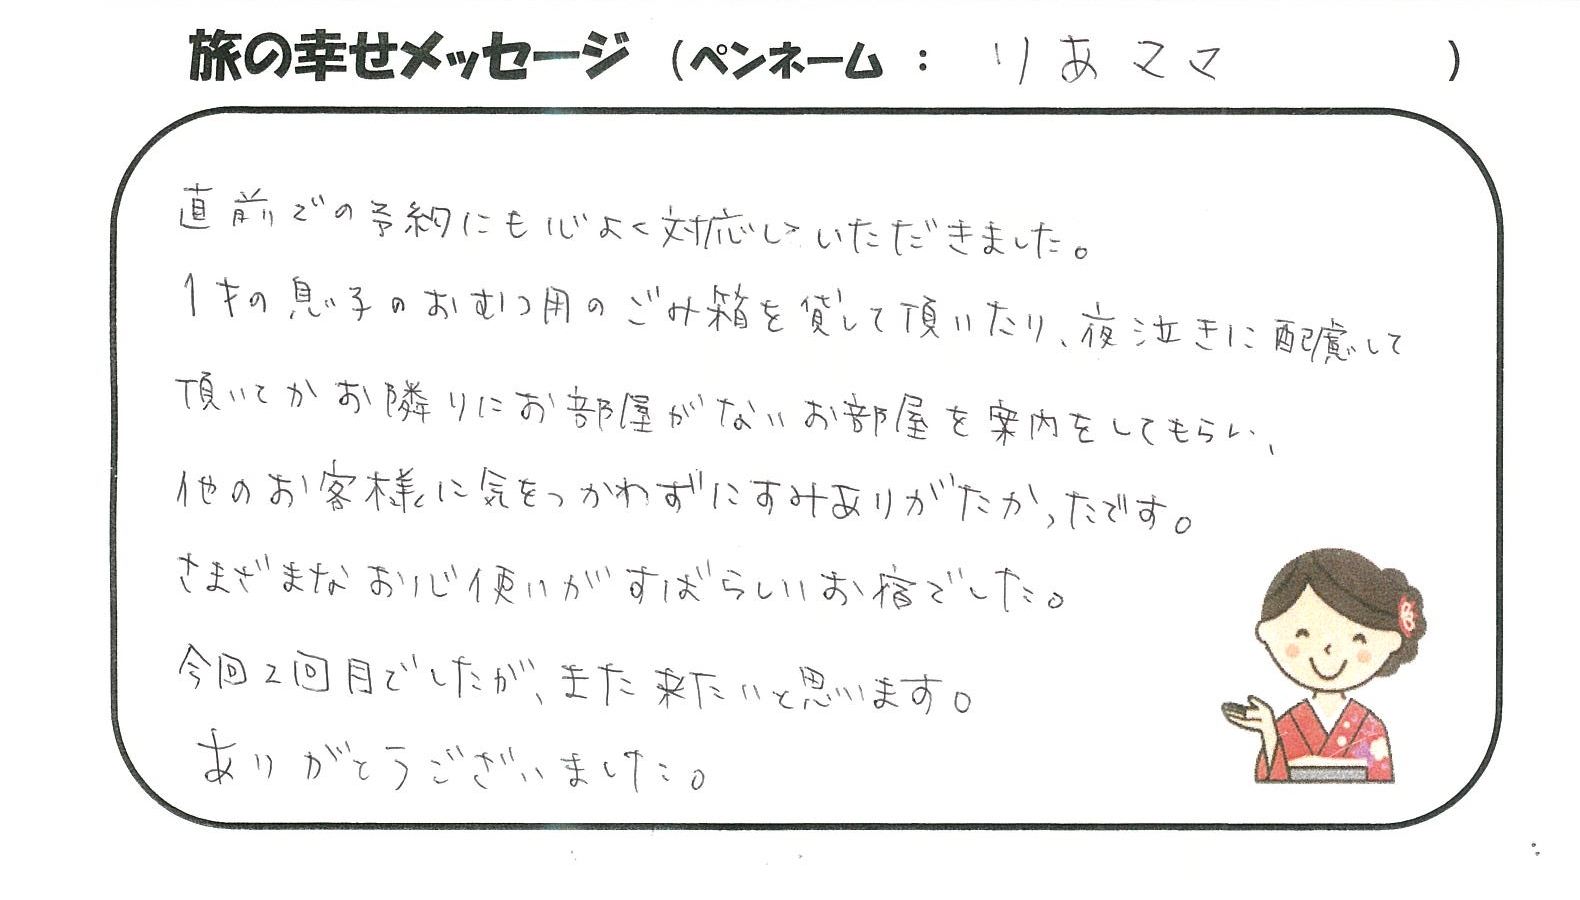 旅の幸せメッセージ (ペンネーム : りあママ )
直前での予約にも心よく対応していただきました。
1才の息子のおむつ用のごみ箱を貸して頂いたり、夜泣きに配慮して
頂いてかお隣りにお部屋がないお部屋を案内をしてもらい、
他のお客様に気をつかわずにすみありがたかったです。
さまざまなお心使いがすばらしいお宿でした。
今回2回目でしたが、また来たいと思います。
ありがとうございました。